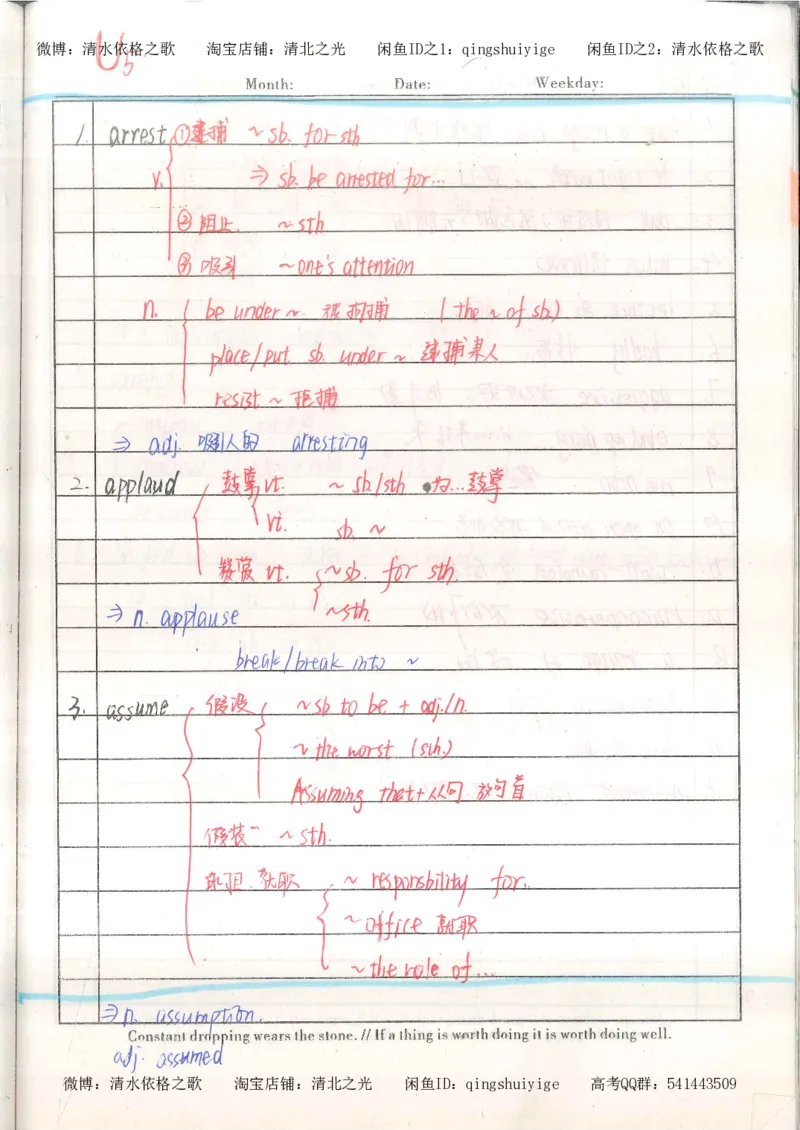 微博：清水依格之歌 淘宝店铺：清北之光 闲鱼ID之1：qingshuiyige 闲鱼ID之2：清水依格之歌
U5
Month: Date: Weekday:
1. arrest ①逮捕 ~ sb. for sth
v. ⇒ sb. be arrested for...
② 阻止. ~ sth
③ 吸引 ~ one's attention
n. be under ~ 被拘捕 (the ~ of sb.)
place/put sb. under ~ 逮捕某人
resist ~ 拒捕
⇒ adj. 吸引人的 arresting
2. applaud 鼓掌 vt. ~ sb./sth 为...鼓掌
vi. sb. ~
赞赏 vt. ~sb. for sth.
⇒ n. applause ~sth.
break/break into ~
3. assume 假设 ~ sb to be + adj./n.
~ the worst (sth.)
Assuming that+从句 放句首
假装 ~ sth.
承担.就职 ~ responsbility for..
~ office 就职
~ the role of ...
⇒ n. assumption.
Constant dropping wears the stone. // If a thing is worth doing it is worth doing well.
adj. assumed
微博：清水依格之歌 淘宝店铺：清北之光 闲鱼ID：qingshuiyige 高考QQ群：541443509